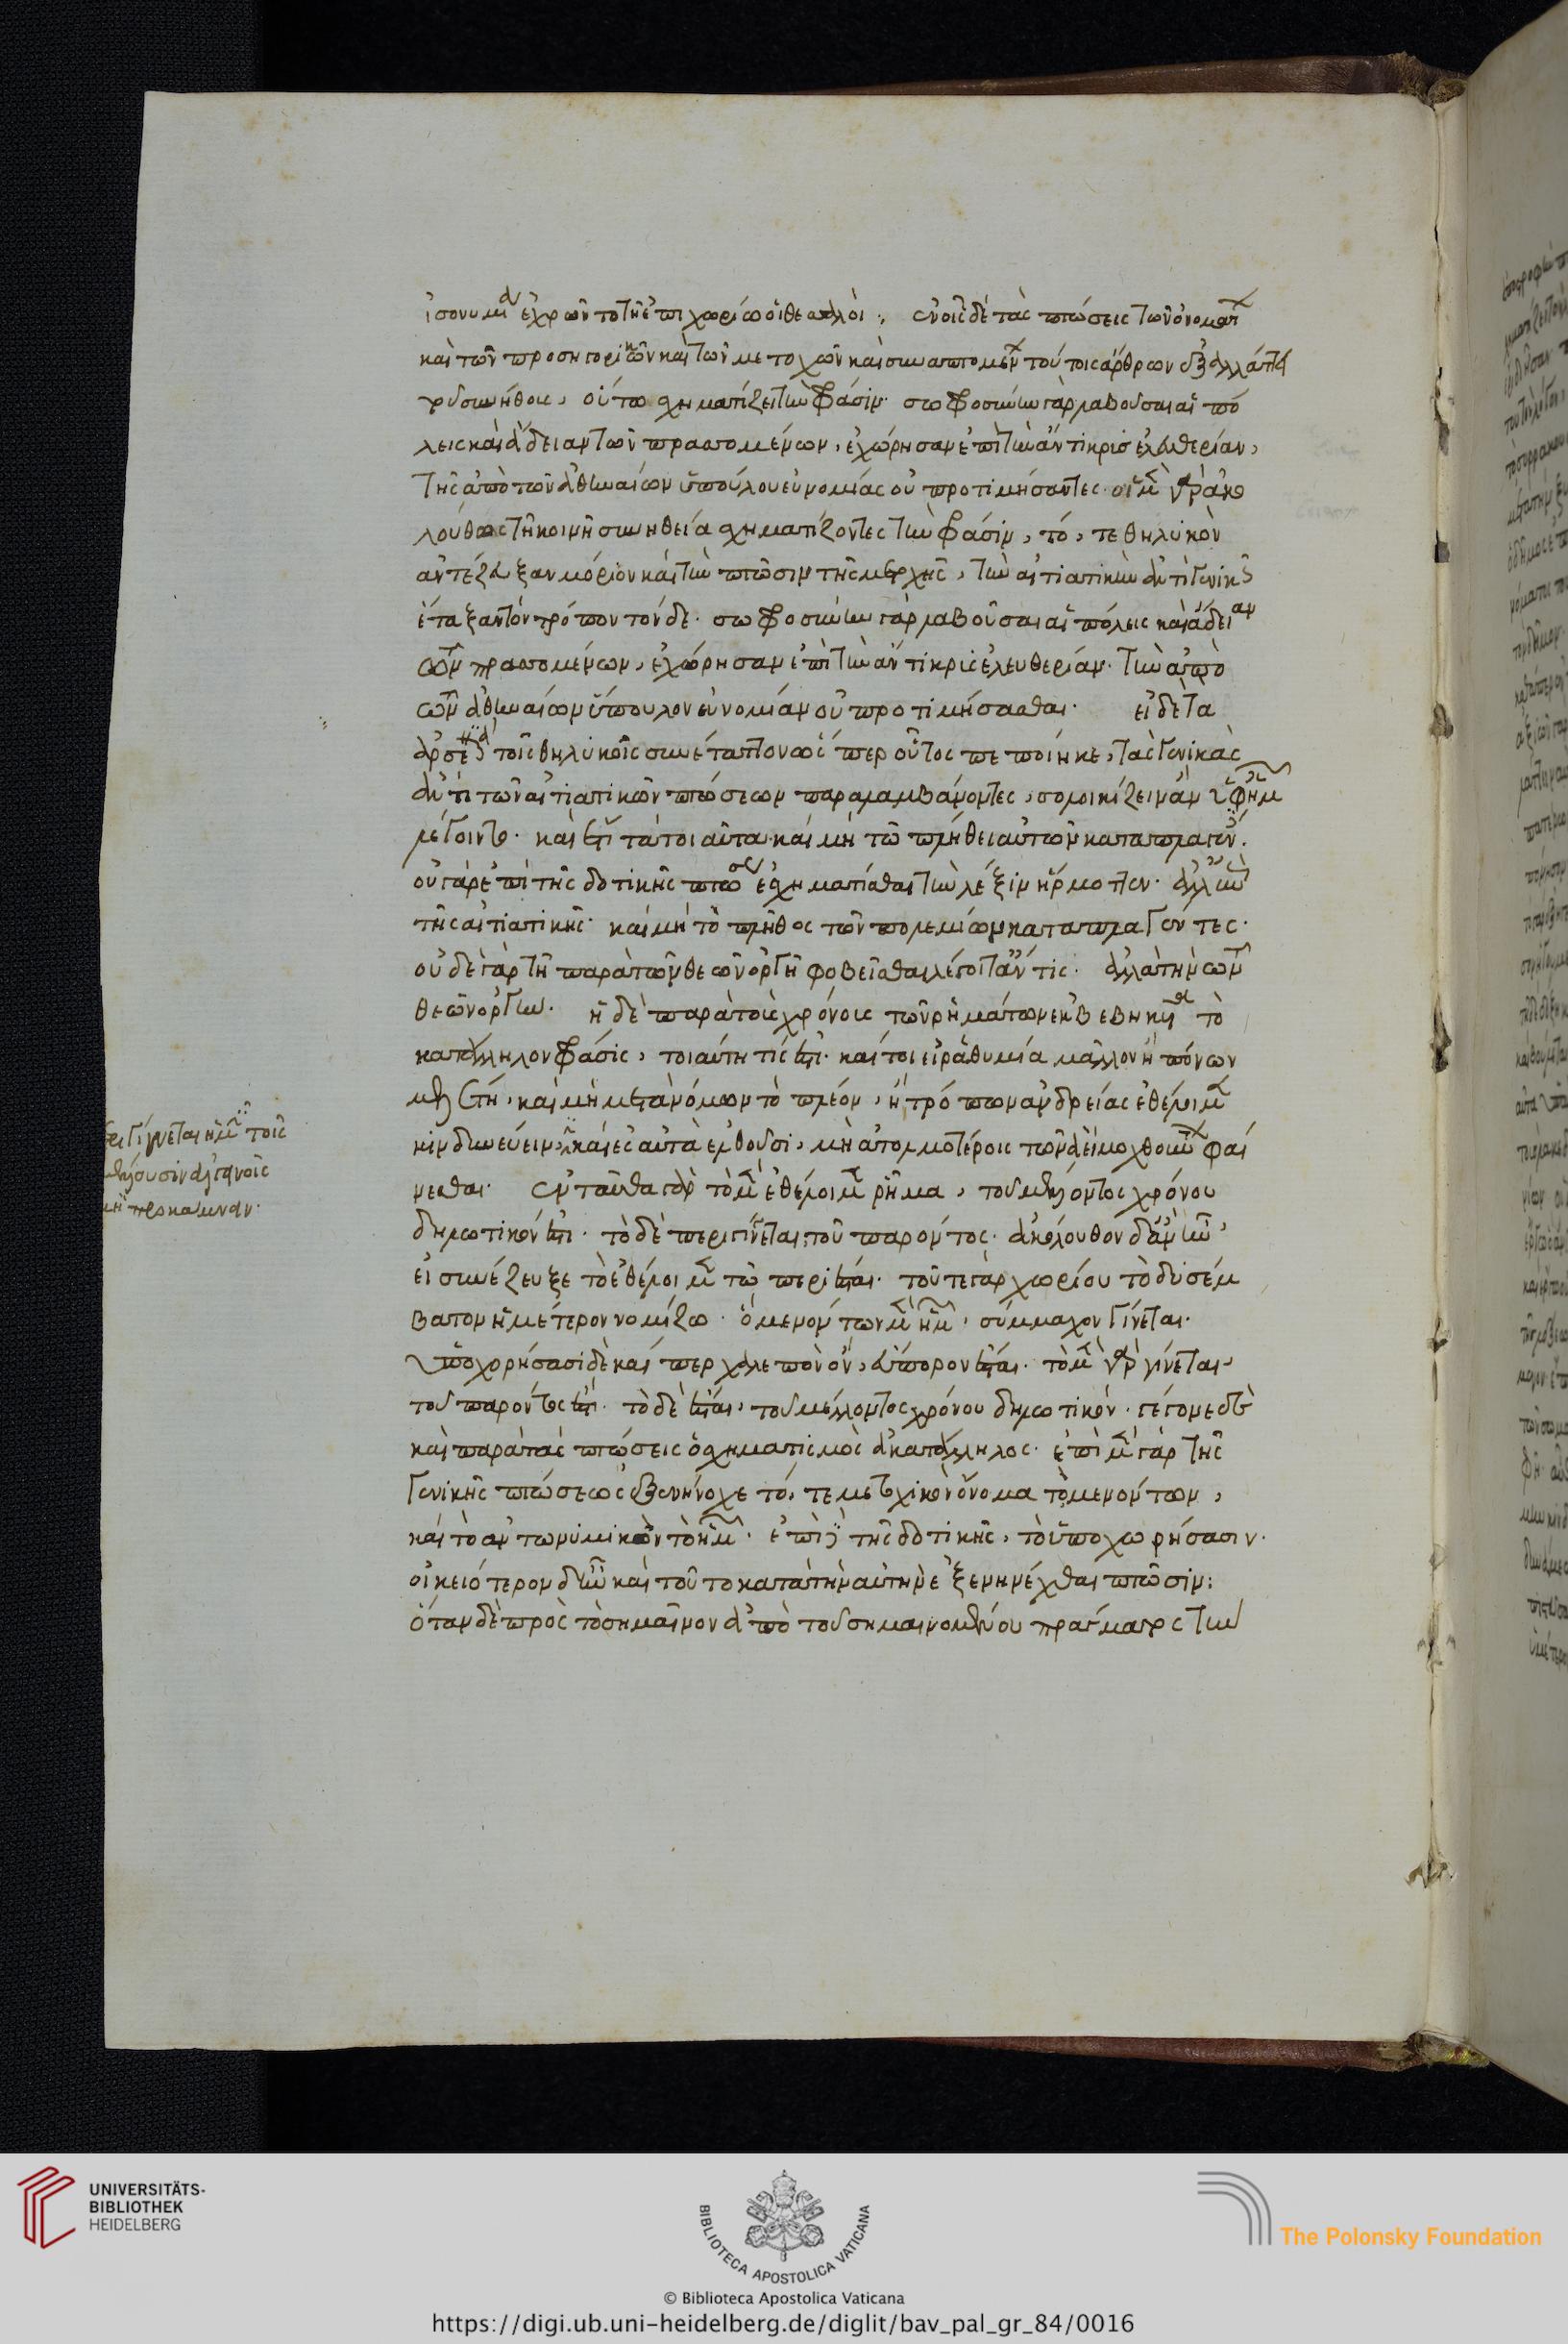 ἰσονομία ἐχρῶντο τῆ ἐπιχωρίω οἱ θεσσαλοί. ἐν οἷς δὲ τὰς πτώσεις τῶν ὀνομάτων
καὶ τῶν προσηγορικῶν καὶ τῶν μετοχῶν καὶ συναπτομένων τούτοις ἄρθρων ἐξαλλάττει
τοῦ συνήθους, οὕτω σχηματίζει τὴν φράσιν. σωφροσύνην γὰρ λαβοῦσαι αἱ πό
λεις καὶ ἄδειαν τῶν πρασσομένων, ἐχώρησαν ἐπὶ τὴν ἄντικρις ἐλευθερίαν,
τῆς ἀπὸ τῶν ἀθηναίων ὑπούλου εὐνομίας οὐ προτιμήσαντες. οἱ μὲν γὰρ ἀκο
λούθως τῆ κοινῆ συνηθεία σχηματίζοντες τὴν φράσιν, τό, τε θηλυκὸν
ἀντέζευξαν μόριον καὶ τὴν πτῶσιν τῆς μετοχῆς, τὴν αἰτιατικὴν ἀντὶ γενικῆς
ἔταξαν τὸν τρόπον τόνδε. σωφροσύνην γὰρ λαβοῦσαι αἱ πόλεις καὶ ἄδειαν
τῶν πρασσομένων, ἐχώρησαν ἐπὶ τὴν ἄντικρις ἐλευθερίαν. τὴν ἀπὸ
τῶν ἀθηναίων ὕπουλον εὐνομίαν οὐ προτιμήσασθαι. εἰ δὲ τὰ
ἀρσενικὰ τοῖς θηλυκοῖς συνέταττον ὥσπερ οὗτος πεποίηκε, τὰς γενικὰς
ἀντὶ τῶν αἰτιατικῶν πτώσεων παραλαμβάνοντες, σολοικίζειν ἂν ὑφ' ἡμῶν
λέγοιντο. καὶ ἔτι τὰ τοιαῦτα καὶ μὴ τῶ πλήθει αὐτῶν καταπλαγέντες.
οὐ γὰρ ἐπὶ τῆς δοτικῆς πτώσεως ἐσχηματίσθαι τὴν λέξιν ἥρμοττεν. ἀλλ' ἐπὶ
τῆς αἰτιατικῆς. καὶ μὴ τὸ πλῆθος τῶν πολεμίων καταπλαγέντες.
οὐδὲ γὰρ τῆ παρὰ τῶν θεῶν ὀργῆ φοβεῖσθαι λέγοιτ' ἄν τις. ἀλλὰ τὴν τῶν
θεῶν ὀργήν. ἡ δὲ παρὰ τοὺς χρόνους τῶν ῥημάτων ἐκβεβηκυῖα τὸ
κατάλληλον φράσις, τοιαύτη τίς ἐστι. καίτοι εἰ ῥαθυμία μᾶλλον ἢ πόνων
μελέτη, καὶ μὴ μετὰ νόμων τὸ πλέον, ἢ τρόπων ἀνδρείας ἐθέλοιμεν
κινδυνεύειν, καὶ ἐς αὐτὰ ἐλθοῦσι, μὴ ἀτολμοτέρους τῶν ἀεὶ μοχθούντων φαί
νεσθαι. ἐνταῦθα γὰρ τὸ μὲν ἐθέλοιμεν ῥῆμα, τοῦ μέλλοντος χρόνου
δηλωτικόν ἐστι. τὸ δὲ περιγίνεται, τοῦ παρόντος. ἀκόλουθον δ' ἂν ἦν,
εἰ συνέζευξε τὸ ἐθέλοιμεν τῶ περιέσται. τοῦ τε γὰρ χωρίου τὸ δυσέμ
βατον ἡμέτερον νομίζω. ὃ μενόντων μὲν ἡμῶν, σύμμαχον γίνεται.
ὑποχωρήσασι δὲ καίπερ χαλεπὸν ὄν, εὔπορον ἔσται. τὸ μὲν γὰρ γίνεται,
τοῦ παρόντός ἐστι. τὸ δὲ ἔσται, τοῦ μέλλοντος χρόνου δηλωτικόν. γέγονε δὲ
καὶ παρὰ τὰς πτώσεις ὁ σχηματισμὸς ἀκατάλληλος. ἐπὶ μὲν γὰρ τῆς
γενικῆς πτώσεως ἐξενήνοχε τό, τε μετοχικὸν ὄνομα τὸ μενόντων,
καὶ τὸ ἀντωνυμικὸν τὸ ἡμῶν. ἐπὶ δὲ τῆς δοτικῆς, τὸ ὑποχωρήσασιν.
οἰκειότερον δ' ἦν καὶ τοῦτο κατὰ τὴν αὐτὴν ἐξενηνέχθαι πτῶσιν:
ὅταν δὲ πρὸς τὸ σημαῖνον ἀπὸ τοῦ σημαινομένου πράγματος τὴν
περιγίγνεται ἡμῖν τοῖς
μέλλουσιν ἀλγεινοῖς
μὴ προκάμνειν.
UNIVERSITÄTS-
BIBLIOTHEK
HEIDELBERG
BIBLIOTECA APOSTOLICA VATICANA
The Polonsky Foundation
© Biblioteca Apostolica Vaticana
https://digi.ub.uni-heidelberg.de/diglit/bav_pal_gr_84/0016